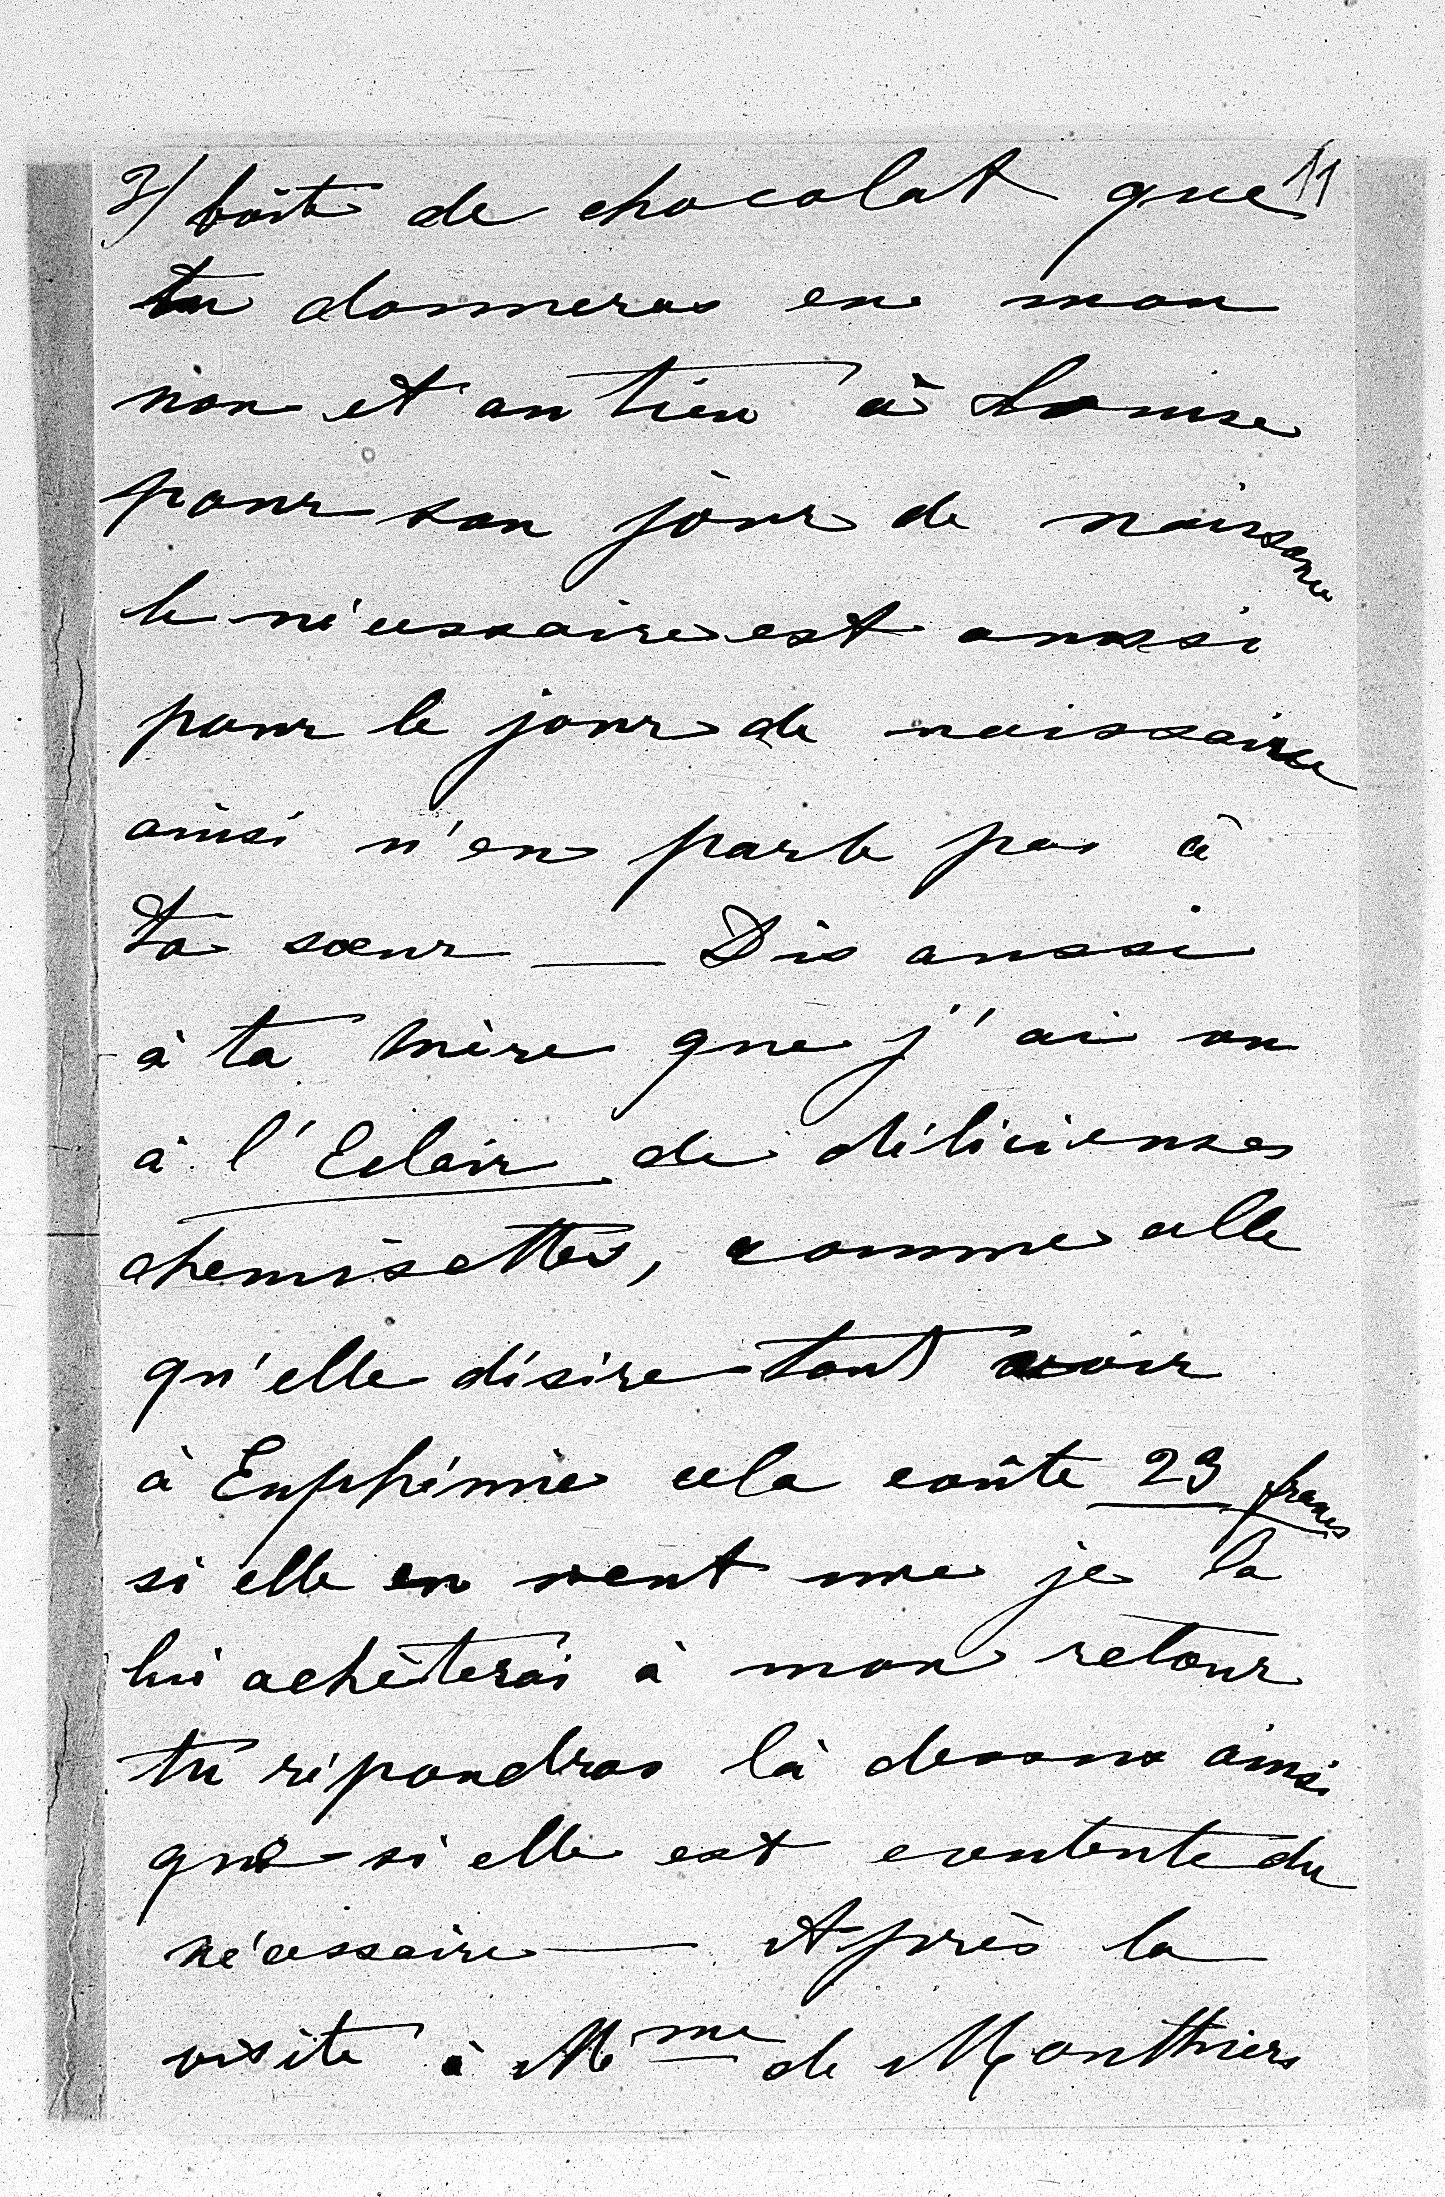 3/ boîte de chocolat que 11
tu donneras en mon
non et au tien à Louise
pour son jour de naissance
le nécessaire est aussi
pour le jour de naissance
ainsi n'en parle pas à
ta sœur — Dis aussi
à ta mère que j'ai vu
à l'Eclair de délicieuses
chemisettes, comme celle
qu'elle désire tant avoir
à Euphémie cela coûte 29 francs
si elle en veut une je la
lui achèterai à mon retour
tu répondras là dessus ainsi
que si elle est contente du
nécessaire — Après la
visite à Mme de Monthiers